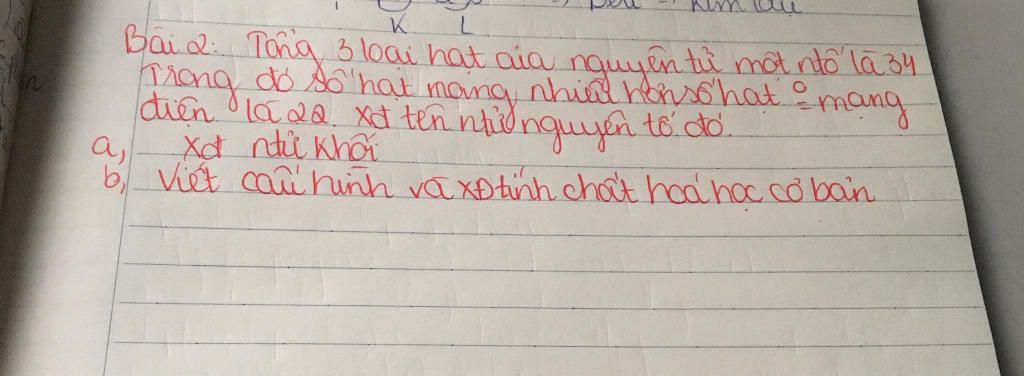 K L
Bài 2: Tổng 3 loại hạt của nguyên tử một ntố là 34
Trong đó số hạt mang nhiều hơn số hạt o mang
điện là 22. xđ tên ntử nguyên tố đó.
a, Xđ ntử khối
b, Viết cấu hình và xđ tính chất hoá học cơ bản